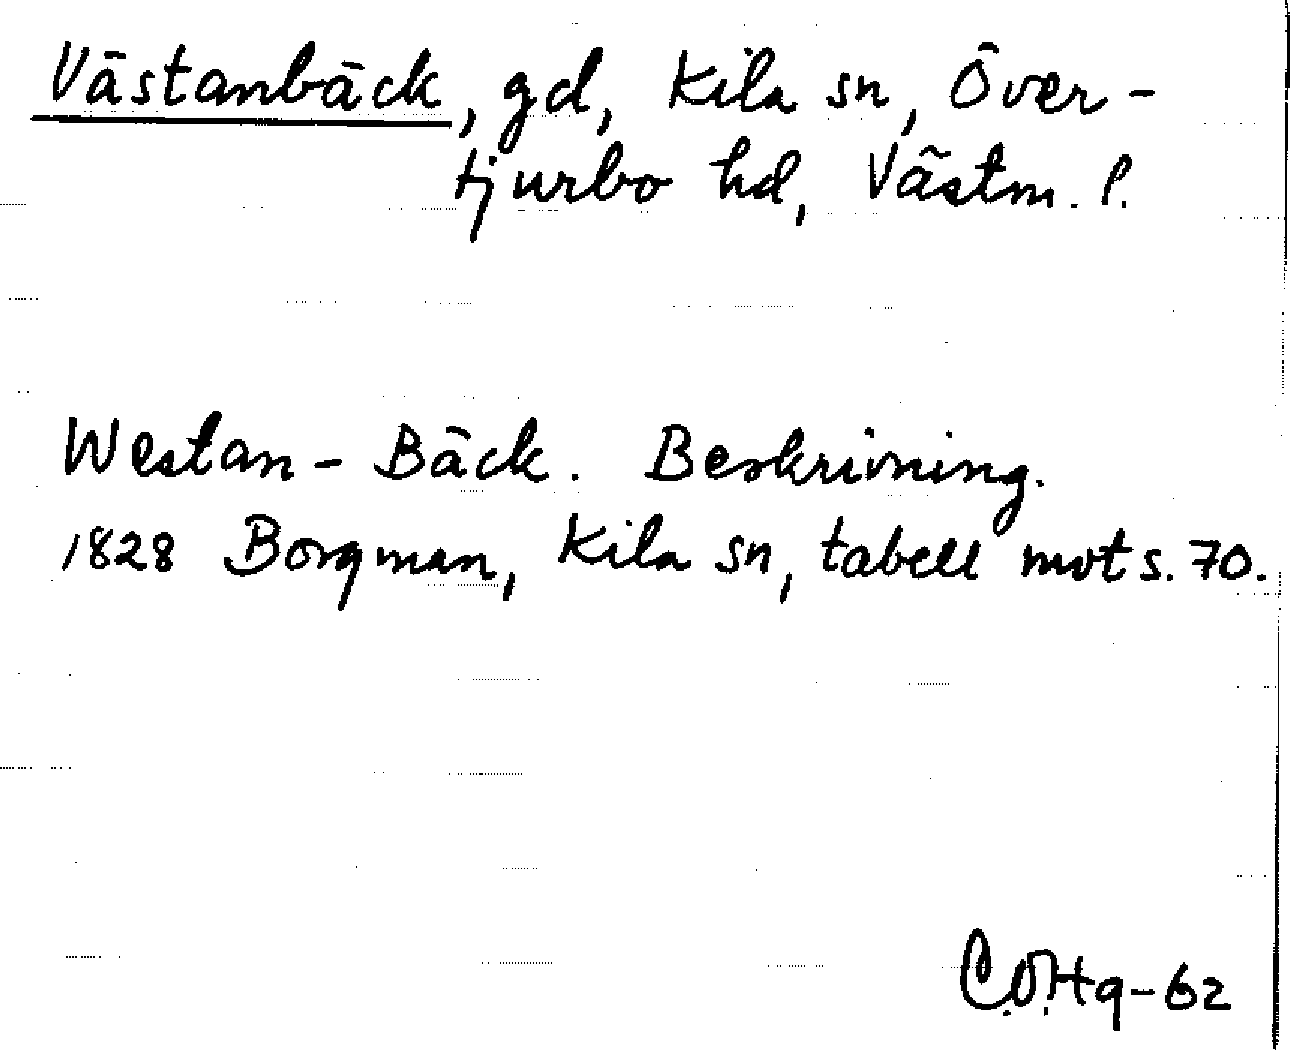 Västanbäck, gd, Kila sn, Över-
tjurbo hd, Västm. l.
Westan-Bäck. Beskrivning.
1828 Borgman, Kila sn, tabell mot s. 70.
-62